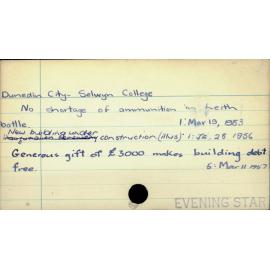 Dunedin City- Selwyn College
No shortage of ammunition in Leith
battle. 1: Mar 19, 1953
New building under
construction (illus) 1: Ja. 28 1956
Generous gift of £3000 makes building debt
free. 5: Mar 11 1957
EVENING STAR